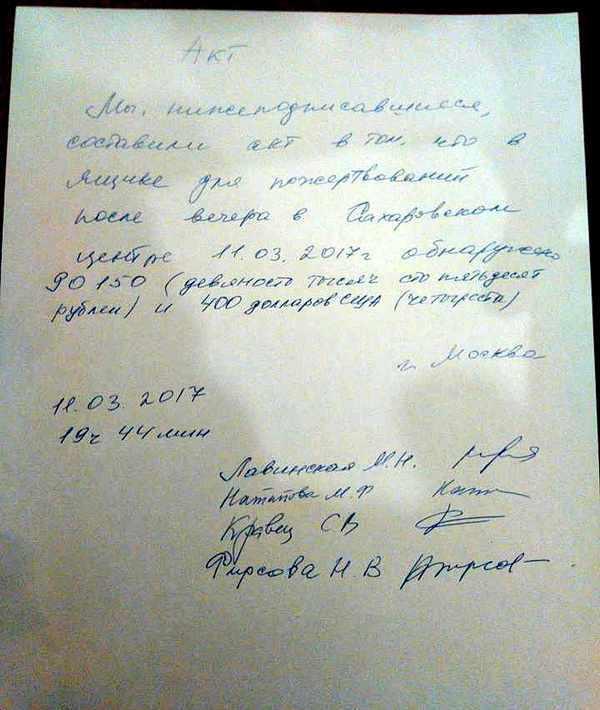 Акт
Мы, нижеподписавшиеся,
составили акт в том, что в
ящике для пожертвований
после вечера в Сахаровском
центре 11.03.2017г обнаружено
90150 (девяносто тысяч сто пятьдесят
рублей) и 400 долларов США (четыреста)
г. Москва
11.03.2017
19ч 44 мин
Лавинская М.Н.
М.Ф
Кравец С.В
Фирсова Н.В Фирсов